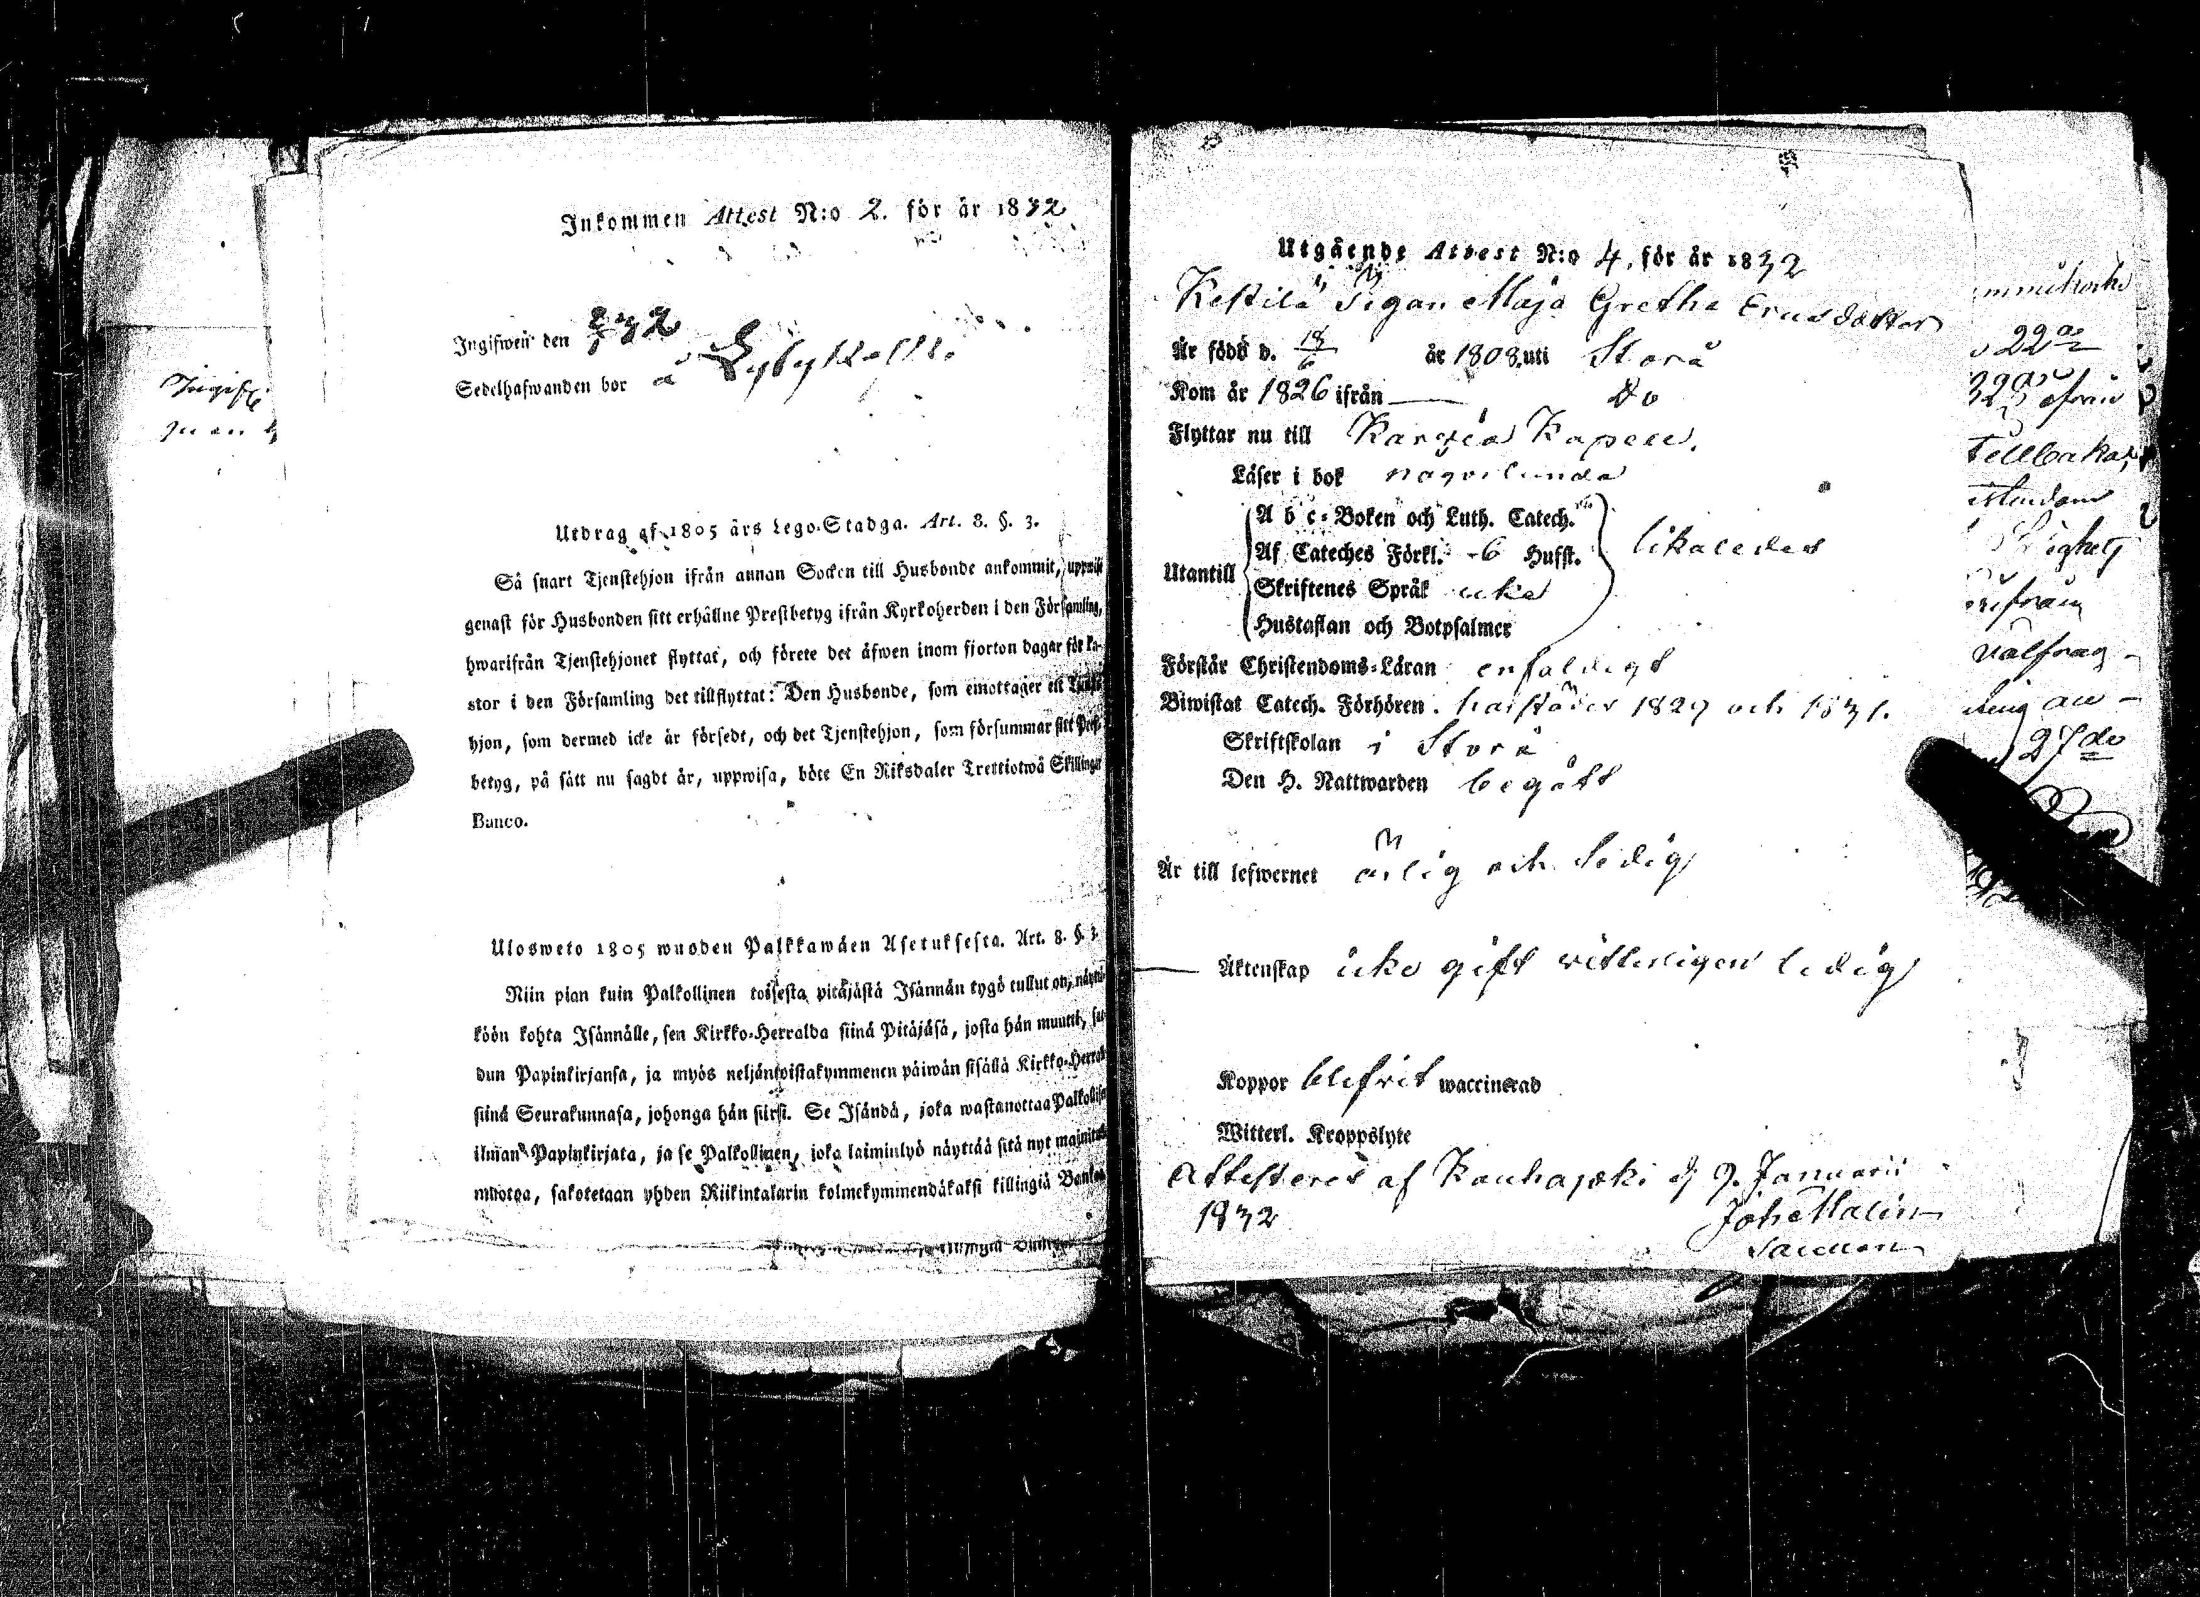 Inkommen Attest N:o 2. för år 1832
Ingifwen den
Sedelhafwanden bor å
Utdrag af 1805 års Lego-Stadga. Art. 8. §. 3.
Så snart Tjenstehjon ifrån annan Socken till Husbonde ankommit, uppwise
genast för Husbonden sitt erhållne Prestbetyg ifrån Kyrkoherden i den Församling,
hwarifrån Tjenstehjonet flyttat, och förete det äfwen inom fjorton dagar för Pa-
stor i den Församling det tillflyttat: Den Husbonde, som emottager ett Tjenste-
hjon, som dermed icke är försedt, och det Tjenstehjon, som försummar sitt Prest-
betyg, på sätt nu sagdt är, uppwisa, böte En Riksdaler Trettiotwå Skillingar
Banco.
Ulosweto 1805 wuoden Palkkawäen Asetuksesta. Art. 8. §. 3.
Niin pian kuin Palkollinen toisesta pitäjästä Isännän tygö tullut on, näyttä-
köön kohta Isännälle, sen Kirkko-Herralda siinä Pitäjäsä, josta hän muutti, saa-
dun Papinkirjansa, ja myös neljäntoistakymmenen päiwän sisällä Kirkko-Herralle
siinä Seurakunnasa, johonga hän siirsi. Se Isändä, joka wastanottaa Palkollisen
ilman Papinkirjata, ja se Palkollinen, joka laiminlyö näyttää sitä nyt mainitulla
muotoa, sakotetaan yhden Riikintalarin kolmekymmendäkaksi killingiä Bankos
Utgående Attest N:o 4. för år 1832
Kestilä Pigan Maja Gretha Ersdotter
Är född d. 18/6 år 1808. uti Storå
Kom år 1826 ifrån — Do
Flyttar nu till Karvia Kapell.
Läser i bok någorlunda
Utantill
A b c-Boken och Luth. Catech.
Af Cateches Förkl. -6 Hufst.
likaledes
Skriftenes Språk icke
Hustaflan och Botpsalmer
Förstår Christendoms-Läran enfaldigt
Biwistat Catech. Förhören. härstädes 1829 och 1831.
Skriftskolan i Storå
Den H. Nattwarden begått
Är till lefwernet ärlig och sedig
Äktenskap icke gift witterligen ledig
Koppor blifvit waccinerad
Witterl. Kroppslyte
Attesteres af Kauhajoki d 9. Januarii
1832
Joh. Malin
22
Tillbaka
27 do